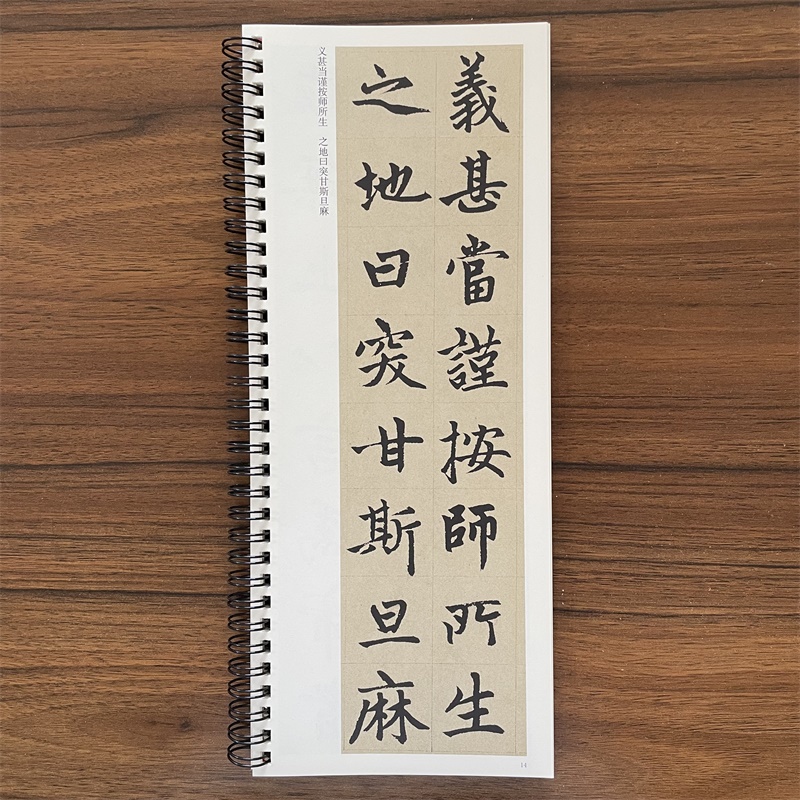 義甚當謹按師所生
之地曰突甘斯旦麻
义甚当谨按师所生　之地曰突甘斯旦麻
14